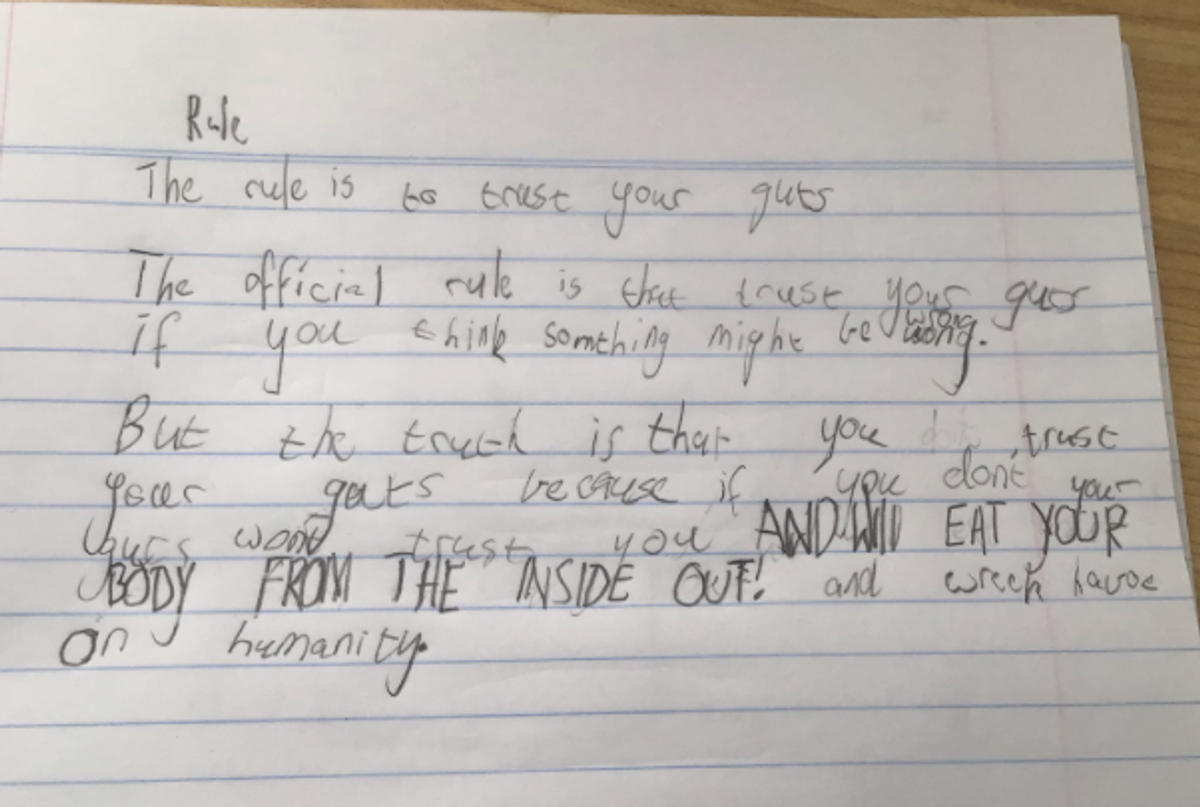 Rule
The rule is to trust your guts
The official rule is that trust your guts
if you think somthing might be wrong.
But the truth is that you trust
your guts because if you dont your
guts wont trust you AND WILL EAT YOUR
BODY FROM THE INSIDE OUT! and wreck havoc
on humanity.